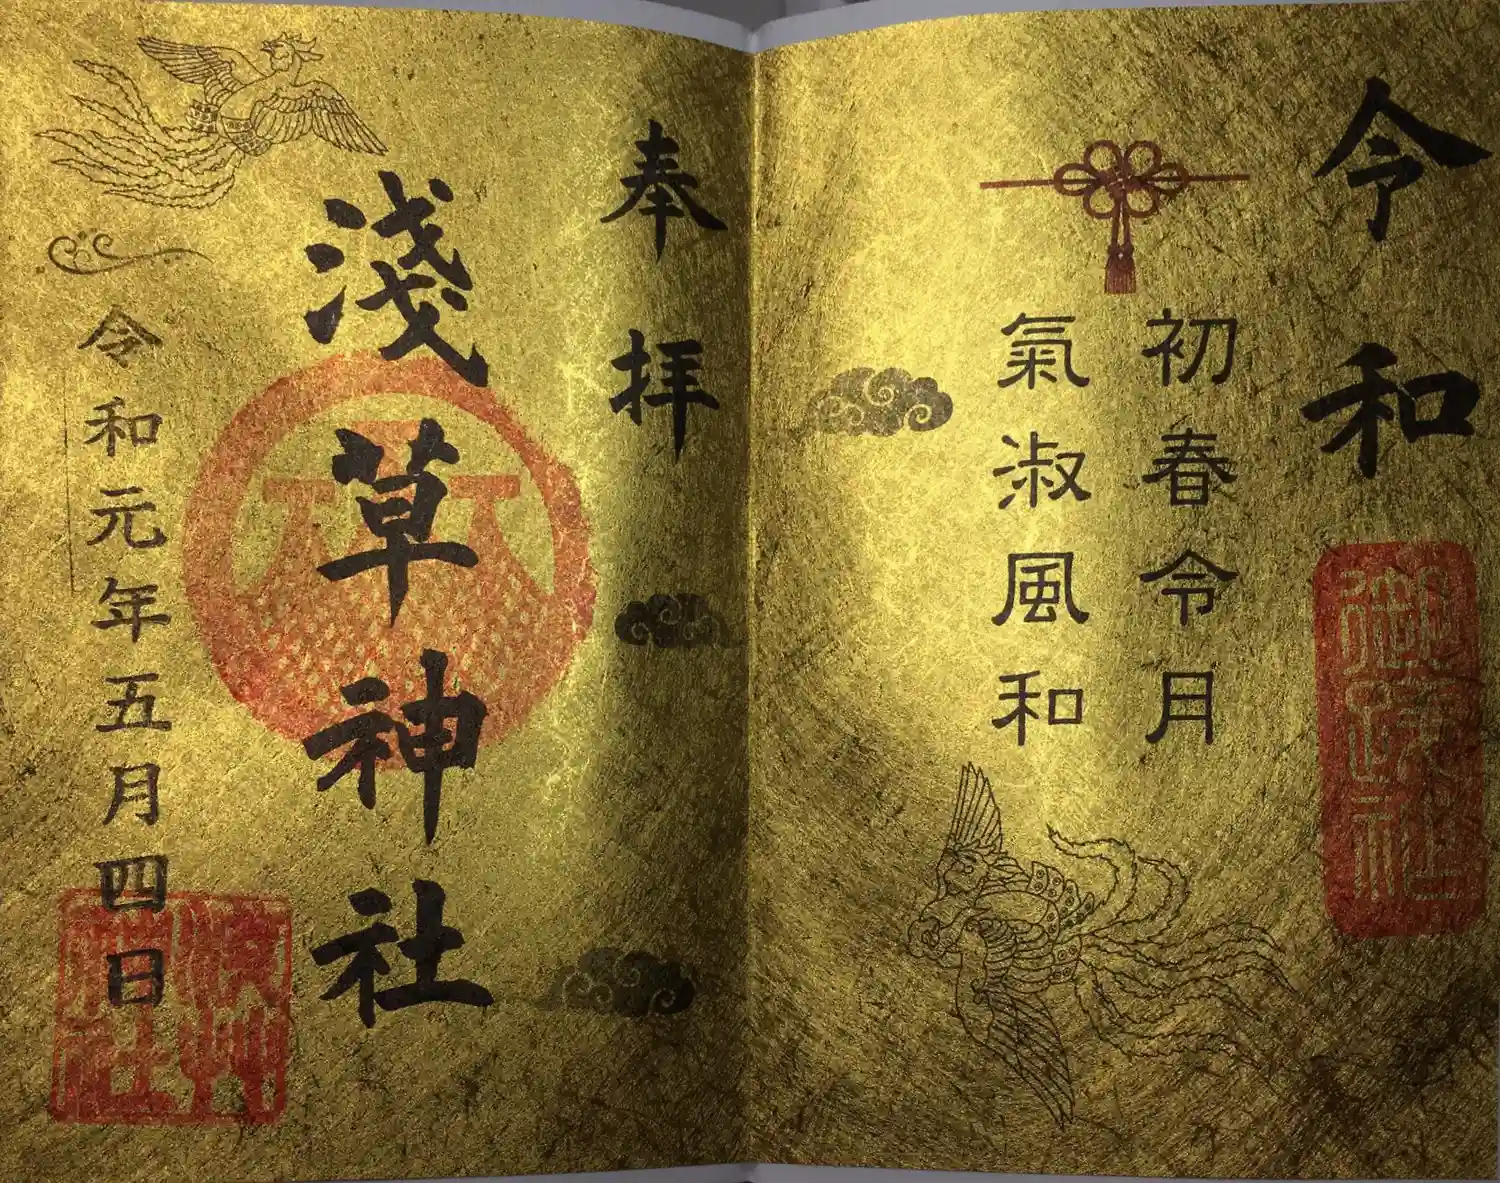 令和
初春令月
氣淑風和
奉拝
淺草神社
令和元年五月四日